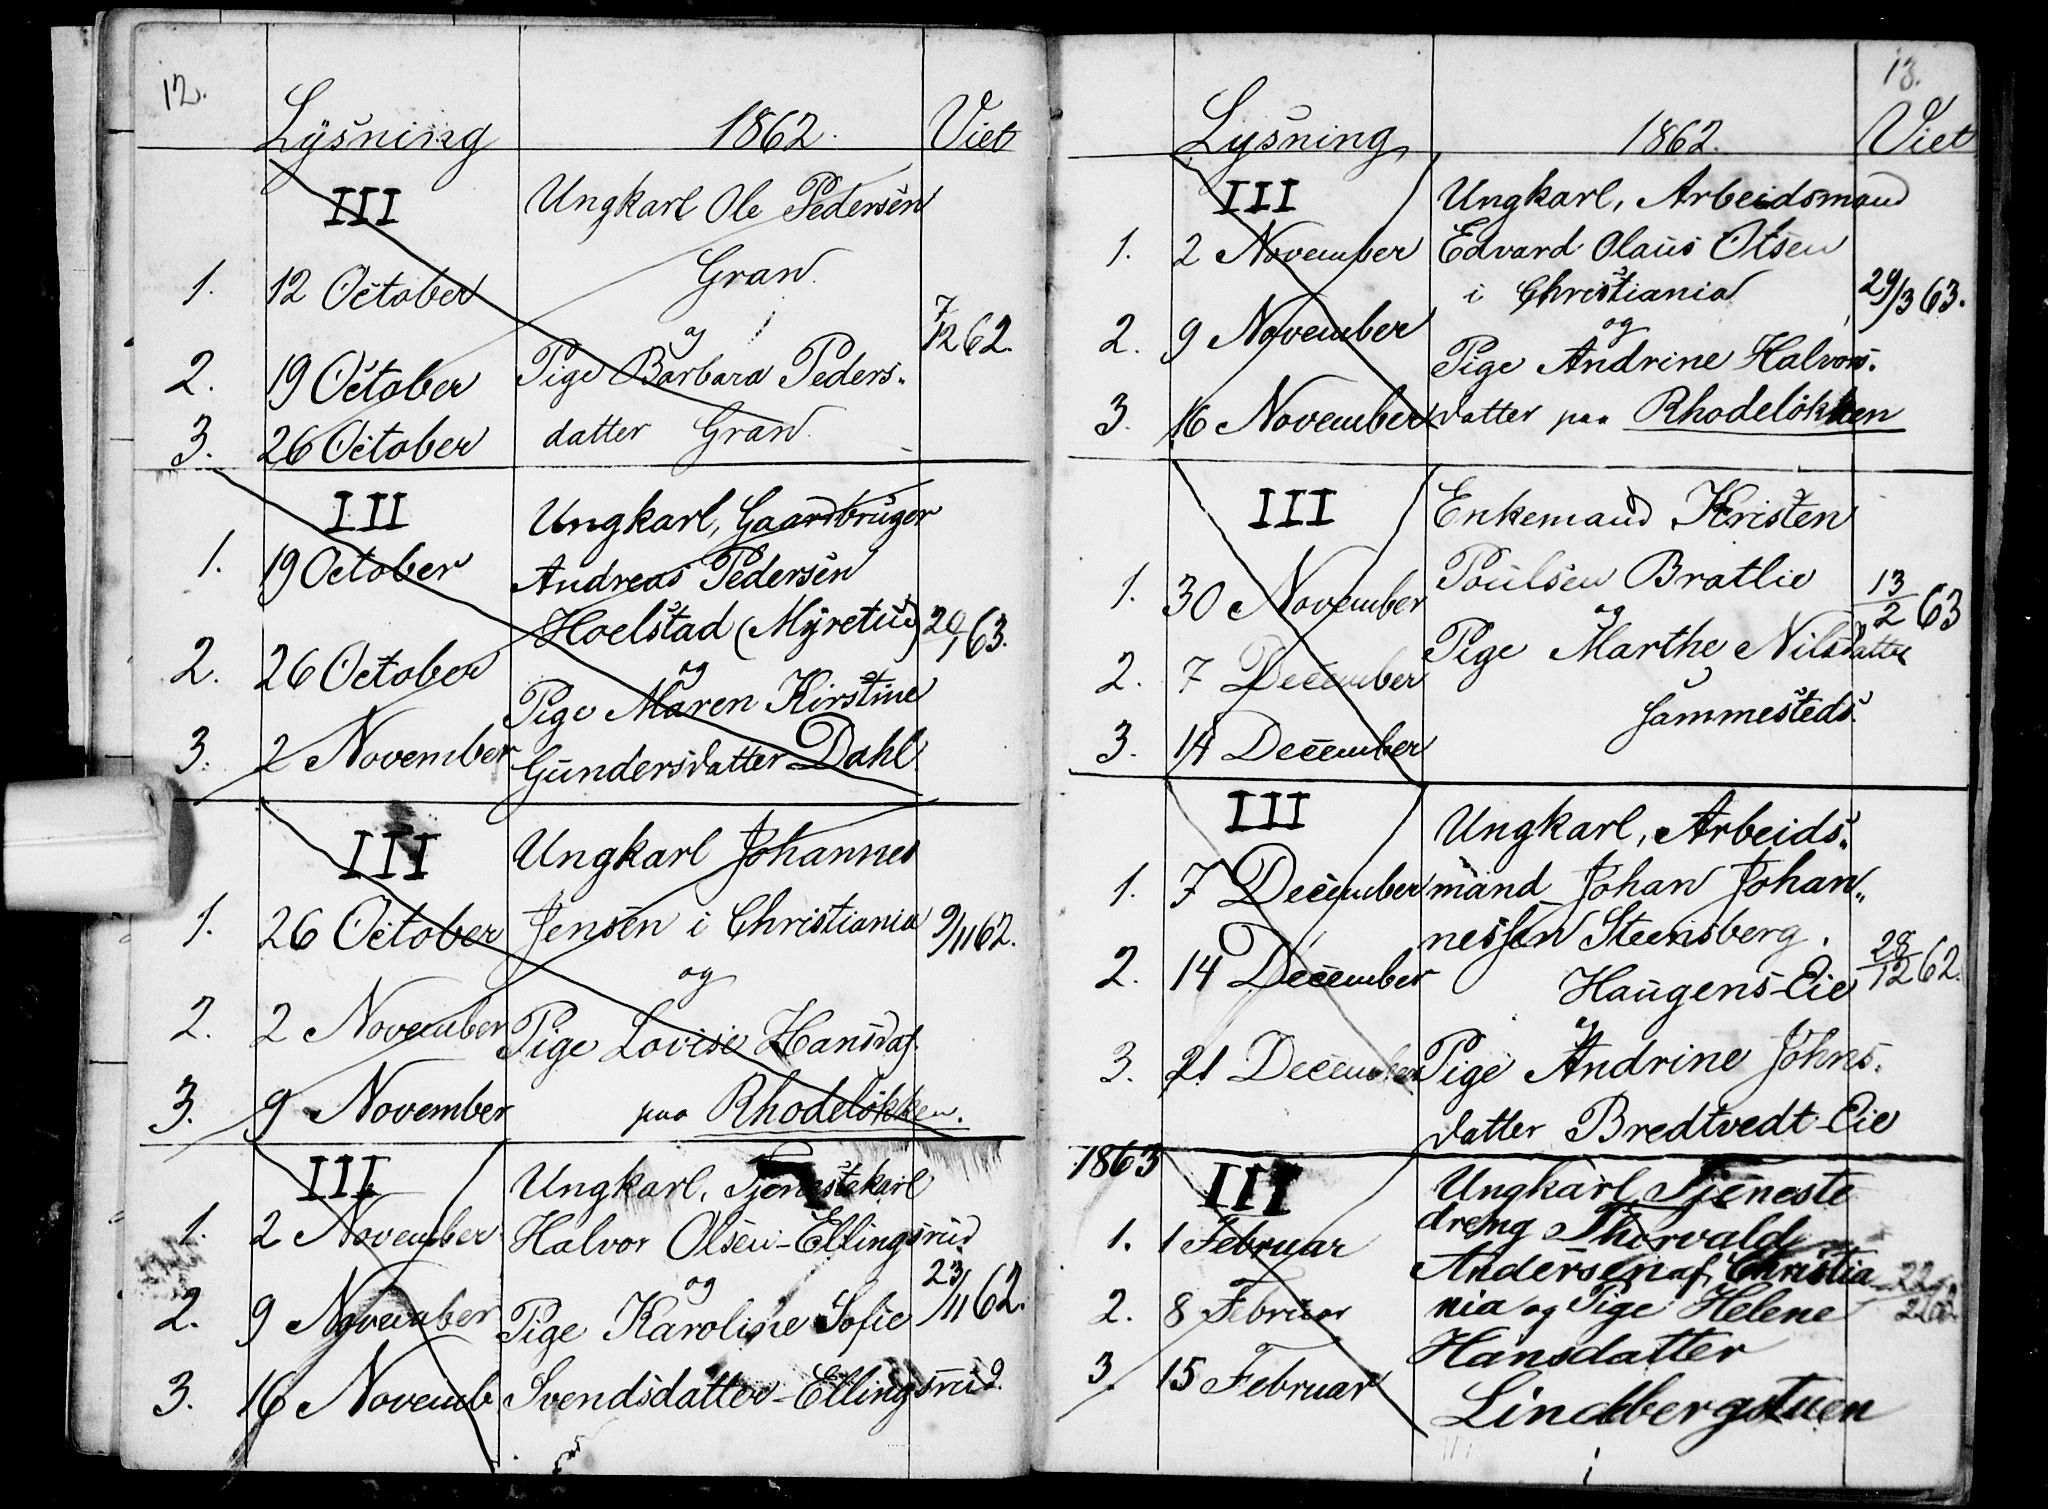 12.
Lysning 1862. Viet
III Ungkarl Ole Pedersen
1. 12 October Gran.
og 7/12 62.
2. 19 October Pige Barbara Peders„
3. 26 October datter Gran.
III Ungkarl, Gaardbruger
1. 19 October Andreas Pedersen
Hoelstad (Myretud) 20/1 63.
2. 26 October og
Pige Maren Kirstine
3. 2 November Gundersdatter Dahl.
III Ungkarl Johannes
1. 26 October Jensen i Christiania 9/11 62.
og
2. 2 November Pige Lovise Hansdat.
3. 9 November paa Rhodeløkken.
III Ungkarl, Tjenestekarl
1. 2 November Halvor Olsen-Ellingsrud
2. 9 November og 23/11 62.
Pige Karoline Sofie
3. 16 Novemb Svendsdatter-Ellingsrud.
13.
Lysning 1862. Viet
III Ungkarl, Arbeidsmand
1. 2 November Edvard Olaus Olsen
i Christiania 29/3 63.
2. 9 November og
Pige Andrine Halvors.
3. 16 November datter paa Rhodeløkken
III Enkemand Kristen
1. 30 November Poulsen Bratlie 13/2 63
og
Pige Marthe Nilsdatter
2. 7 December
Sammesteds.
3. 14 December
III Ungkarl, Arbeids„
1. 7 December mand Johan Johan„
nessen Steensberg.
2. 14 December Haugens-Eie 28/12 62.
og
3. 21 December Pige Andrine Johns.
datter Bredtvedt-Eie
1863 III Ungkarl Tjeneste
dreng Thorvald
1. 1 Februar Andersen af Christia
2. 8 Februar nia og Pige Helene
Hansdatter
3. 15 Februar Lindbergstuen